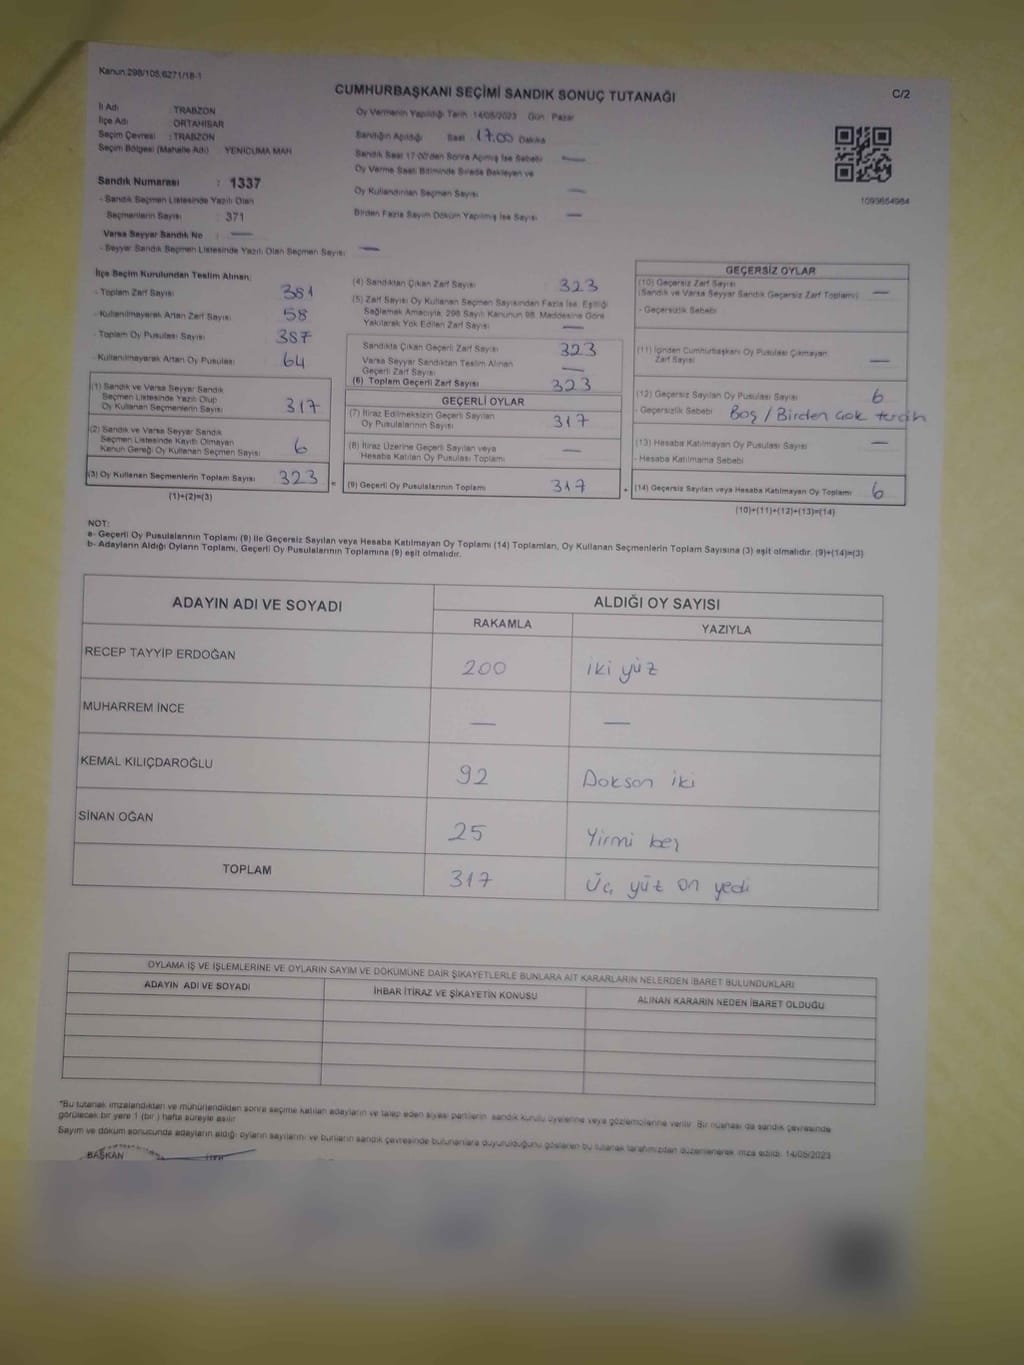 Kanun:298/105,6271/18-1
CUMHURBAŞKANI SEÇİMİ SANDIK SONUÇ TUTANAĞI
C/2
İl Adı : TRABZON
İlçe Adı : ORTAHİSAR
Seçim Çevresi : TRABZON
Seçim Bölgesi (Mahalle Adı) YENİCUMA MAH
Sandık Numarası : 1337
- Sandık Seçmen Listesinde Yazılı Olan
Seçmenlerin Sayısı : 371
Varsa Seyyar Sandık No : —
- Seyyar Sandık Seçmen Listesinde Yazılı Olan Seçmen Sayısı —
Oy Vermenin Yapıldığı Tarih 14/05/2023 Gün Pazar
Sandığın Açıldığı Saat 17.00 Dakika
Sandık Saat 17:00'den Sonra Açılmış İse Sebebi —
Oy Verme Saati Bitiminde Sırada Bekleyen ve
Oy Kullandırılan Seçmen Sayısı —
Birden Fazla Sayım Döküm Yapılmış İse Sayısı —
1093654984
İlçe Seçim Kurulundan Teslim Alınan;
- Toplam Zarf Sayısı 381
- Kullanılmayarak Artan Zarf Sayısı 58
- Toplam Oy Pusulası Sayısı 387
- Kullanılmayarak Artan Oy Pusulası 64
(1) Sandık ve Varsa Seyyar Sandık
Seçmen Listesinde Yazılı Olup
Oy Kullanan Seçmenlerin Sayısı 317
(2) Sandık ve Varsa Seyyar Sandık
Seçmen Listesinde Kayıtlı Olmayan
Kanun Gereği Oy Kullanan Seçmen Sayısı 6
(3) Oy Kullanan Seçmenlerin Toplam Sayısı 323 =
(1)+(2)=(3)
(4) Sandıktan Çıkan Zarf Sayısı 323
(5) Zarf Sayısı Oy Kullanan Seçmen Sayısından Fazla İse, Eşitliği
Sağlamak Amacıyla, 298 Sayılı Kanunun 98. Maddesine Göre
Yakılarak Yok Edilen Zarf Sayısı —
Sandıkta Çıkan Geçerli Zarf Sayısı 323
Varsa Seyyar Sandıktan Teslim Alınan
Geçerli Zarf Sayısı —
(6) Toplam Geçerli Zarf Sayısı 323
GEÇERLİ OYLAR
(7) İtiraz Edilmeksizin Geçerli Sayılan
Oy Pusulalarının Sayısı 317
(8) İtiraz Üzerine Geçerli Sayılan veya
Hesaba Katılan Oy Pusulası Toplamı —
(9) Geçerli Oy Pusulalarının Toplamı 317 +
GEÇERSİZ OYLAR
(10) Geçersiz Zarf Sayısı
(Sandık ve Varsa Seyyar Sandık Geçersiz Zarf Toplamı) —
- Geçersizlik Sebebi
(11) İçinden Cumhurbaşkanı Oy Pusulası Çıkmayan
Zarf Sayısı —
(12) Geçersiz Sayılan Oy Pusulası Sayısı 6
- Geçersizlik Sebebi Boş / Birden çok tercih
(13) Hesaba Katılmayan Oy Pusulası Sayısı —
- Hesaba Katılmama Sebebi
(14) Geçersiz Sayılan veya Hesaba Katılmayan Oy Toplamı 6
(10)+(11)+(12)+(13)=(14)
NOT:
a- Geçerli Oy Pusulalarının Toplamı (9) ile Geçersiz Sayılan veya Hesaba Katılmayan Oy Toplamı (14) Toplamları, Oy Kullanan Seçmenlerin Toplam Sayısına (3) eşit olmalıdır. (9)+(14)=(3)
b- Adayların Aldığı Oyların Toplamı, Geçerli Oy Pusulalarının Toplamına (9) eşit olmalıdır.
ADAYIN ADI VE SOYADI
ALDIĞI OY SAYISI
RAKAMLA YAZIYLA
RECEP TAYYİP ERDOĞAN 200 iki yüz
MUHARREM İNCE — —
KEMAL KILIÇDAROĞLU 92 Doksan iki
SİNAN OĞAN 25 Yirmi beş
TOPLAM 317 Üç yüz on yedi
OYLAMA İŞ VE İŞLEMLERİNE VE OYLARIN SAYIM VE DÖKÜMÜNE DAİR ŞİKAYETLERLE BUNLARA AİT KARARLARIN NELERDEN İBARET BULUNDUKLARI
ADAYIN ADI VE SOYADI İHBAR İTİRAZ VE ŞİKAYETİN KONUSU ALINAN KARARIN NEDEN İBARET OLDUĞU
"Bu tutanak imzalandıktan ve mühürlendikten sonra seçime katılan adayların ve talep eden siyasi partilerin sandık kurulu üyelerine veya gözlemcilerine verilir. Bir nüshası da sandık çevresinde
görülecek bir yere 1 (bir) hafta süreyle asılır
Sayım ve döküm sonucunda adayların aldığı oyların sayılarını ve bunların sandık çevresinde bulunanlara duyurulduğunu gösteren bu tutanak tarafımızdan düzenlenerek imza edildi. 14/05/2023
BAŞKAN